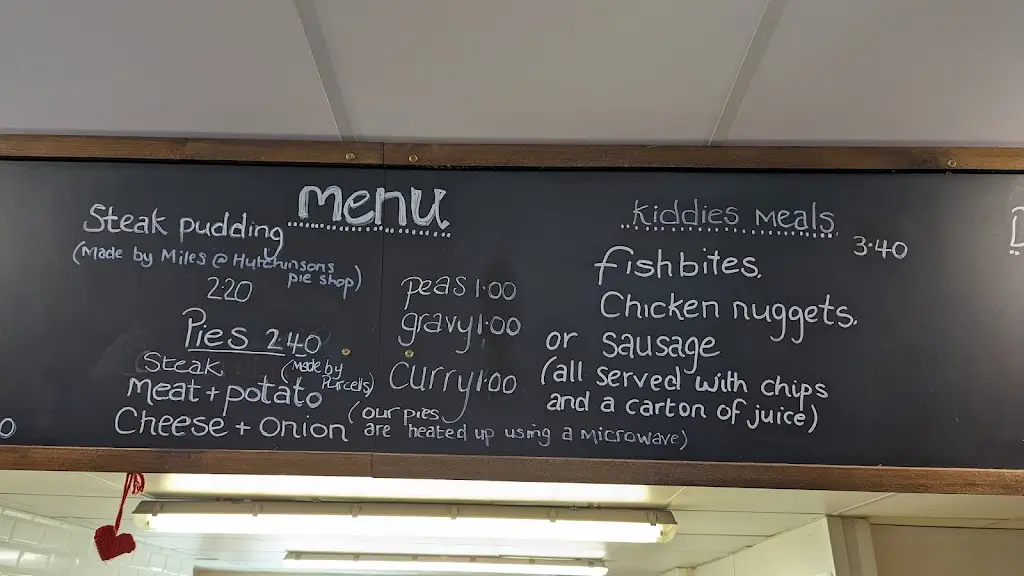 menu
Steak pudding
(Made by Miles @ Hutchinsons
pie shop)
220
Pies 2.40
Steak (Made by
Purcells)
Meat + potato
Cheese + onion (our pies
are heated up using a microwave)
peas 1.00
gravy 1.00
Curry 1.00
Kiddies Meals
3.40
fishbites,
Chicken nuggets,
or sausage
(all served with chips
and a carton of juice)